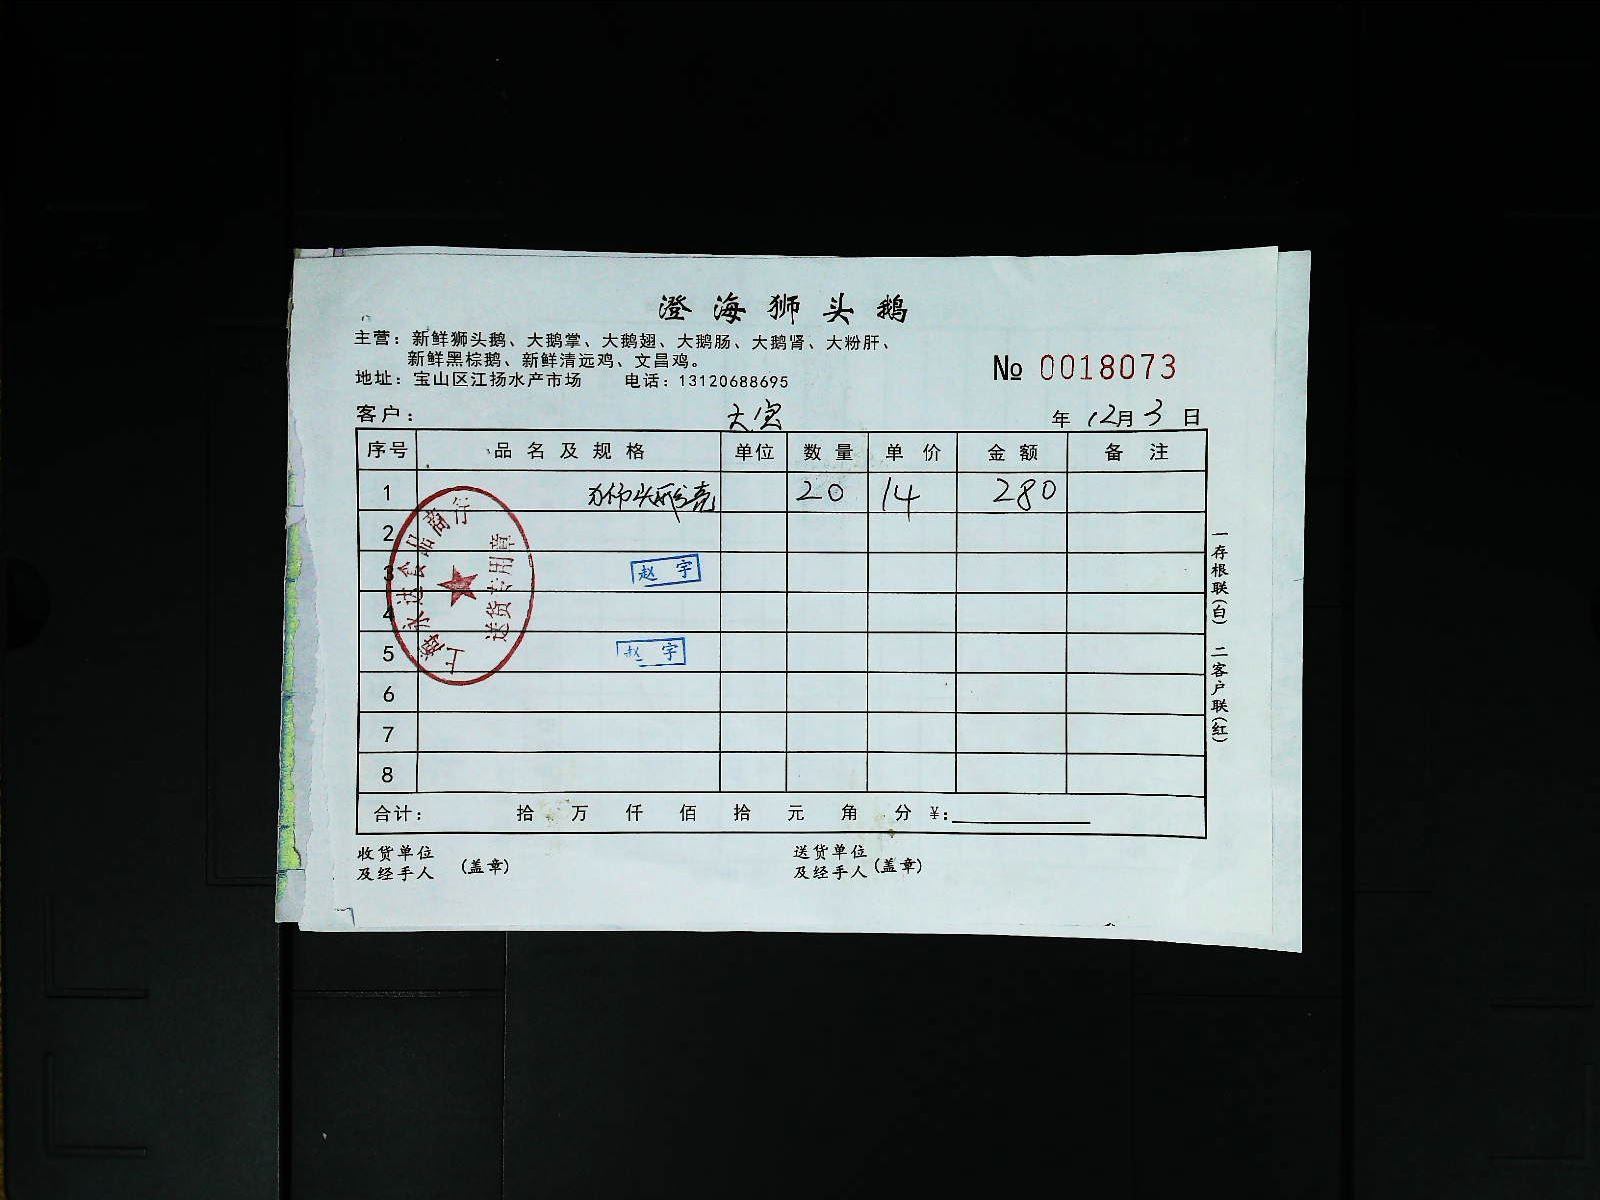 澄海狮头鹅
主营：新鲜狮头鹅、大鹅掌、大鹅翅、大鹅肠、大鹅肾、大粉肝、
新鲜黑棕鹅、新鲜清远鸡、文昌鸡。
地址：宝山区江扬水产市场 电话：13120688695
№ 0018073
客户： 年 12月 3 日
序号 品名及规格 单位 数量 单价 金额 备注
1 狮头 20 14 280
2
3 赵宇
4
5 赵宇
6
7
8
合计： 拾 万 仟 佰 拾 元 角 分 ¥：
收货单位
及经手人 （盖章）
送货单位
及经手人（盖章）
一存根联（白） 二客户联（红）
上海永达食品商行
送货专用章